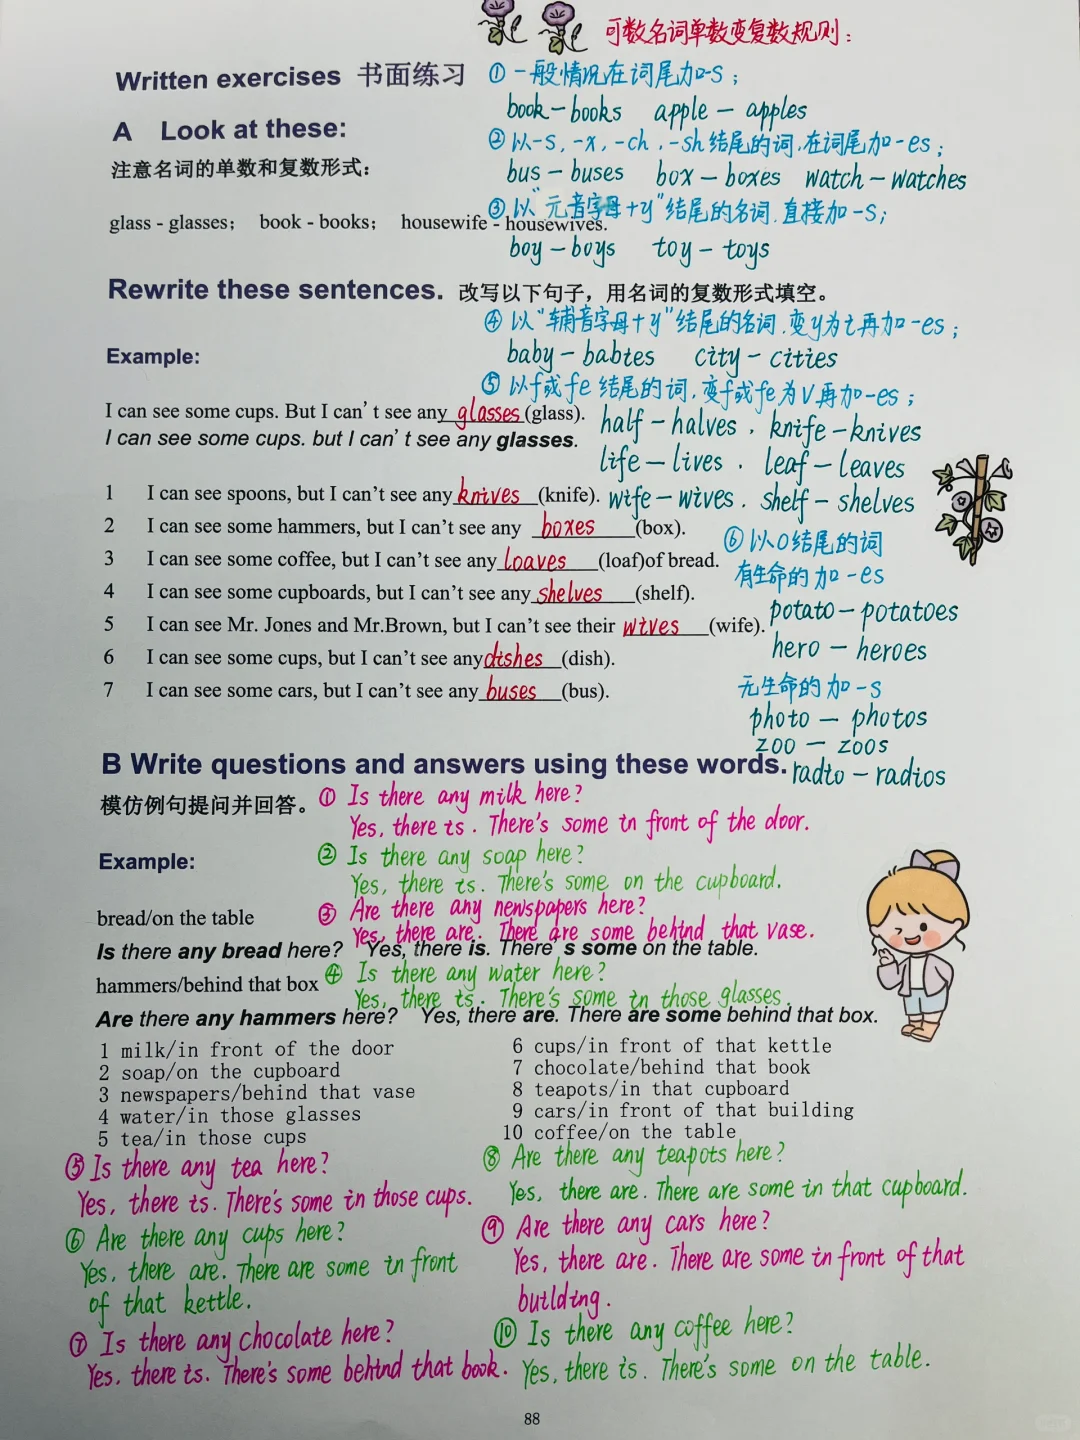 可数名词单数变复数规则：
Written exercises 书面练习
① 一般情况在词尾加-s；
book－books apple－apples
A Look at these:
② 以-s，-x，-ch，-sh结尾的词，在词尾加-es；
注意名词的单数和复数形式：
bus－buses box－boxes watch－watches
③ 以“元音字母+y”结尾的名词，直接加-s；
glass - glasses； book - books； housewife - housewives.
boy－boys toy－toys
Rewrite these sentences. 改写以下句子，用名词的复数形式填空。
④ 以“辅音字母+y”结尾的名词，变y为i再加-es；
Example:
baby－babies city－cities
⑤ 以f或fe结尾的词，变f或fe为v再加-es；
I can see some cups. But I can't see any glasses (glass).
half－halves，knife－knives
I can see some cups. but I can't see any glasses.
life－lives，leaf－leaves
1 I can see spoons, but I can't see any knives (knife).
wife－wives，shelf－shelves
2 I can see some hammers, but I can't see any boxes (box).
⑥ 以o结尾的词
3 I can see some coffee, but I can't see any loaves (loaf)of bread.
有生命的加-es
4 I can see some cupboards, but I can't see any shelves (shelf).
potato－potatoes
5 I can see Mr. Jones and Mr.Brown, but I can't see their wives (wife).
hero－heroes
6 I can see some cups, but I can't see any dishes (dish).
无生命的加-s
7 I can see some cars, but I can't see any buses (bus).
photo－photos
zoo－zoos
B Write questions and answers using these words.
radio－radios
模仿例句提问并回答。
① Is there any milk here?
Yes, there is. There's some in front of the door.
② Is there any soap here?
Example:
Yes, there is. There's some on the cupboard.
③ Are there any newspapers here?
bread/on the table
Yes, there are. There are some behind that vase.
Is there any bread here? Yes, there is. There's some on the table.
④ Is there any water here?
hammers/behind that box
Yes, there is. There's some in those glasses.
Are there any hammers here? Yes, there are. There are some behind that box.
1 milk/in front of the door
2 soap/on the cupboard
3 newspapers/behind that vase
4 water/in those glasses
5 tea/in those cups
6 cups/in front of that kettle
7 chocolate/behind that book
8 teapots/in that cupboard
9 cars/in front of that building
10 coffee/on the table
⑤ Is there any tea here?
Yes, there is. There's some in those cups.
⑥ Are there any cups here?
Yes, there are. There are some in front
of that kettle.
⑦ Is there any chocolate here?
Yes, there is. There's some behind that book.
⑧ Are there any teapots here?
Yes, there are. There are some in that cupboard.
⑨ Are there any cars here?
Yes, there are. There are some in front of that
building.
⑩ Is there any coffee here?
Yes, there is. There's some on the table.
88